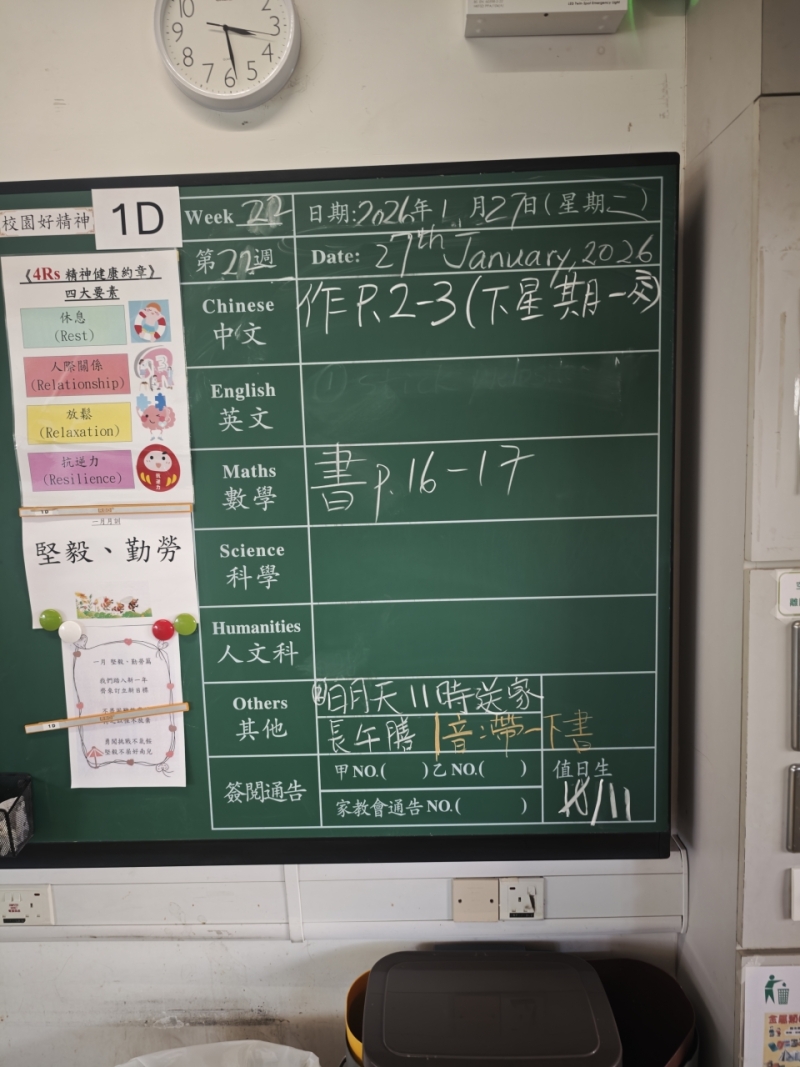 10
2
9
3
8
4
7
6
5
校園好精神
1D
Week 22
日期:2026年1月27日(星期二)
第22週
Date: 27th January, 2026
《4Rs 精神健康約章》
四大要素
休息
(Rest)
人際關係
(Relationship)
放鬆
(Relaxation)
抗逆力
(Resilience)
一月月訓
堅毅、勤勞
一月 堅毅、勤勞篇
我們踏入新一年
勇闖挑戰不氣餒
Chinese
中文
作 P.2-3 (下星期一交)
English
英文
Maths
數學
書 p.16-17
Science
科學
Humanities
人文科
Others
其他
明天11時送家
長午膳
音:帶一下書
簽閱通告
甲NO.( )乙NO.( )
家教會通告NO.( )
值日生
/11